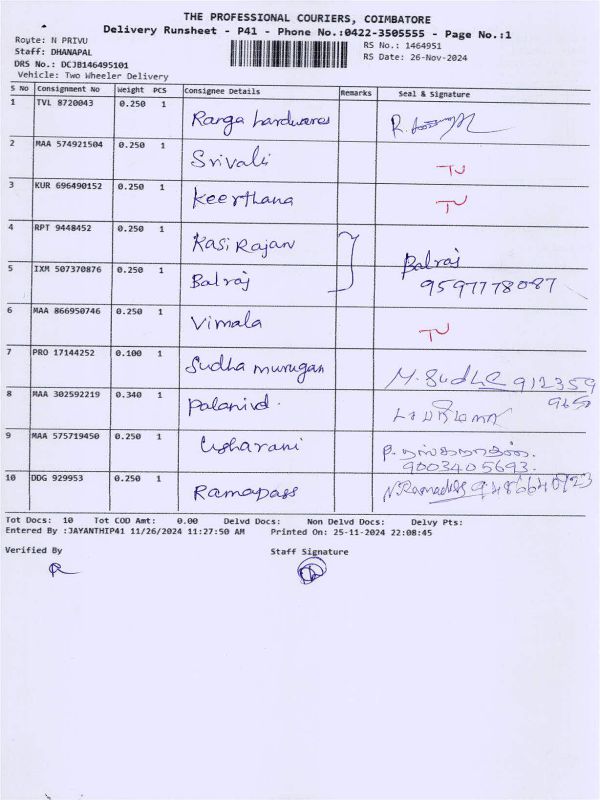 THE PROFESSIONAL COURIERS, COIMBATORE
Delivery Runsheet - P41 - Phone No.:0422-3505555 - Page No.:1
Route: N PRIVU
RS No.: 1464951
Staff: DHANAPAL
RS Date: 26-Nov-2024
DRS No.: DCJB146495101
Vehicle: Two Wheeler Delivery
S No Consignment No Weight PCS Consignee Details Remarks Seal & Signature
1 TVL 8720043 0.250 1 Ranga hardwares R.
2 MAA 574921504 0.250 1 Srivalli TU
3 KUR 696490152 0.250 1 Keerthana TU
4 RPT 9448452 0.250 1 Kasi Rajan
Balraj
5 IXM 507370876 0.250 1 Balraj 9597778087
6 MAA 866950746 0.250 1 Vimala TU
7 PRO 17144252 0.100 1 Sudha murugan M. Sudha 912359
8 MAA 302592219 0.340 1 Palanivel
9 MAA 575719450 0.250 1 Usharani
9003405693.
10 DDG 929953 0.250 1 Ramapass N. Ramadas
Tot Docs: 10 Tot COD Amt: 0.00 Delvd Docs: Non Delvd Docs: Delvy Pts:
Entered By :JAYANTHIP41 11/26/2024 11:27:50 AM Printed On: 25-11-2024 22:08:45
Verified By Staff Signature